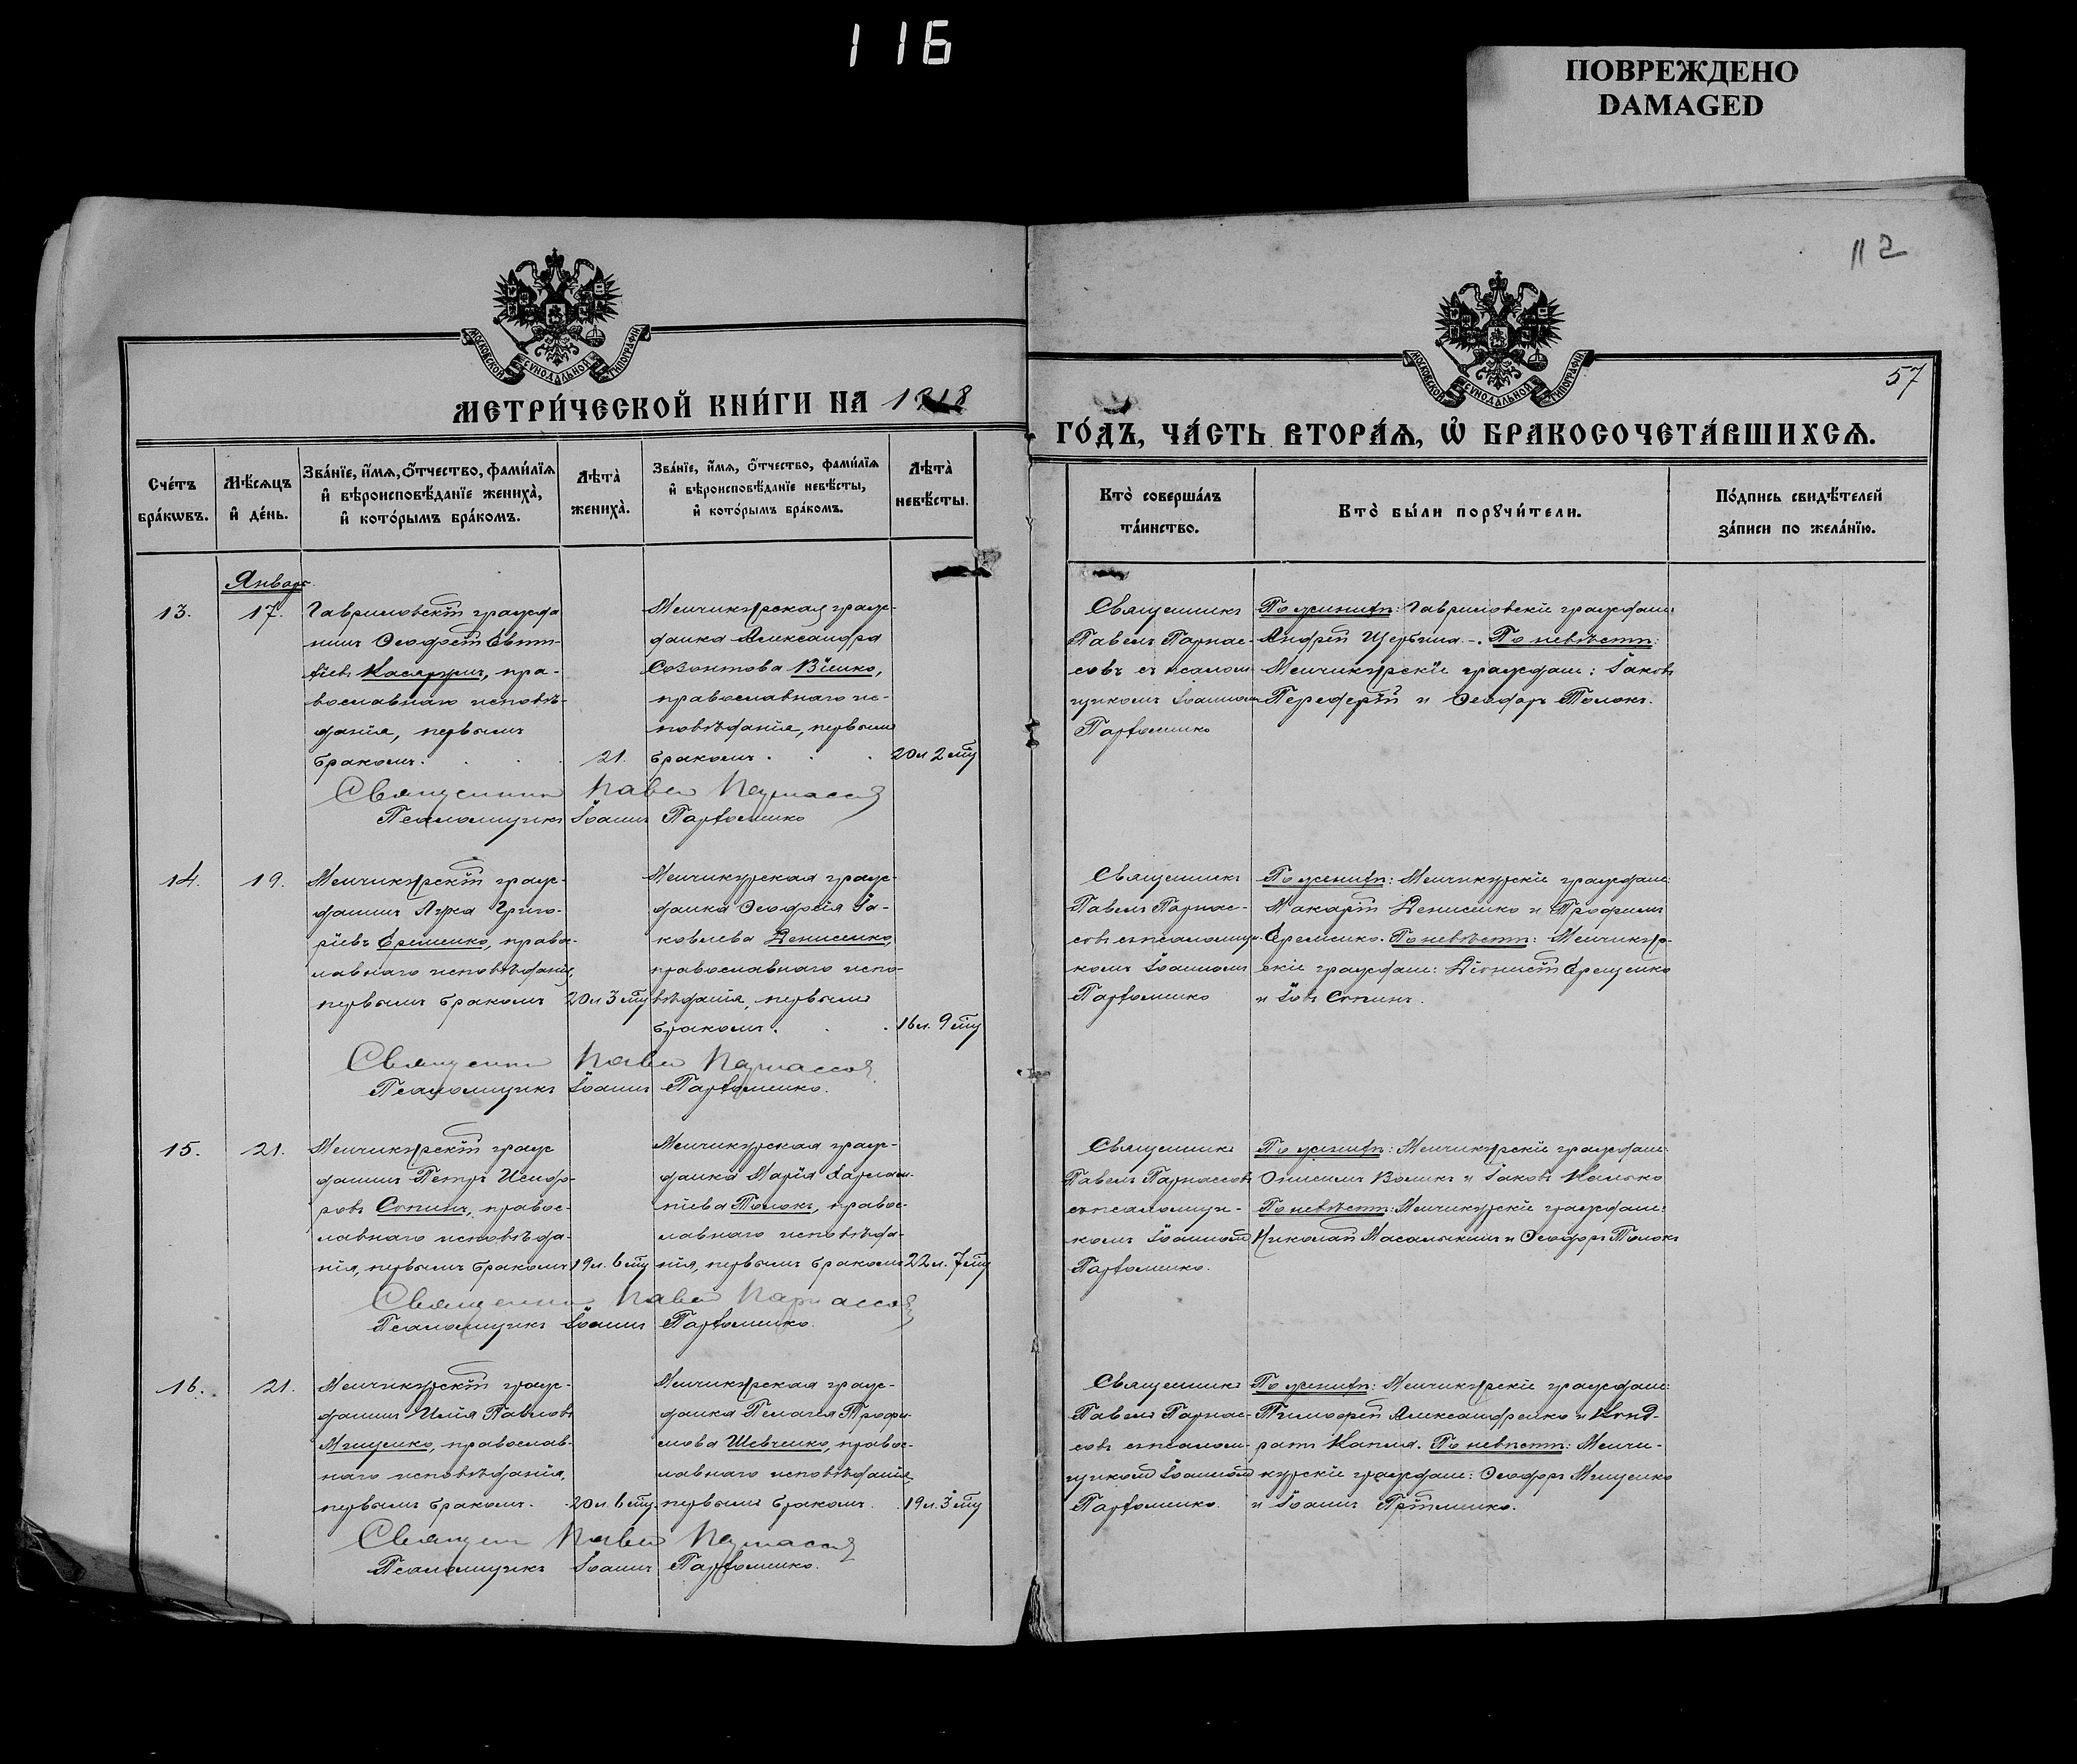 116
ПОВРЕЖДЕНО
DAMAGED
112
57
МОСКОВСКОЙ СѴНОДАЛЬНОЙ ТИПОГРАФІИ
МОСКОВСКОЙ СѴНОДАЛЬНОЙ ТИПОГРАФІИ
МЕТРИ́ЧЕСКОЙ КНИ́ГИ НА 1918
ГО́ДЪ, ЧА́СТЬ ВТОРА́Ѧ, Ѡ҆ БРАКОСОЧЕТА́ВШИХСѦ.
Сче́тъ бра́кѡвъ.
Мѣ́сѧцъ и҆ де́нь.
Зва́нїе, и҆́мѧ, ѻ҆́тчество, фами́лїѧ
и҆ вѣроисповѣ́данїе женихà,
и҆ кото́рымъ бра́комъ.
Лѣтà женихà.
Зва́нїе, и҆́мѧ, ѻ҆́тчество, фами́лїѧ
и҆ вѣроисповѣ́данїе невѣ́сты,
и҆ кото́рымъ бра́комъ.
Лѣтà невѣ́сты.
Ктò соверша́лъ та́инство.
Ктò бы́ли порꙋчи́тели.
По́дпись свидѣ́телей за́писи по жела́нїю.
Январь
13.
17.
Гавриловскій гражда
нинъ Ѳеодосій Евти-
ѳіевъ, пра-
вославнаго исповѣ-
данія, первымъ
бракомъ.
21.
Менчикурская граж-
данка Александра
Созонтова Віенко,
православнаго ис-
повѣданія, первымъ
бракомъ.
20 л 2 мѣс
Священникъ
Павелъ Парнас-
совъ съ псалом-
щикомъ Іоанномъ
Парѳоменко
По женихѣ: Гавриловскіе граждане
Андрей Щербина. По невѣстѣ:
Менчикурскіе граждане: Іаковъ
и Ѳеодоръ Толокъ.
Священникъ Павелъ Парнассовъ
Псаломщикъ Іоаннъ Парѳоменко
14.
19.
Менчикурскій граж-
данинъ Лука Григо-
ріевъ Еременко, правос-
лавнаго исповѣданія,
первымъ бракомъ
20 л 3 мѣс
Менчикурская граж-
данка Ѳеодосія Іа-
ковлева Денисенко,
православнаго испо-
вѣданія, первымъ
бракомъ.
16 л. 9 мѣс
Священникъ
Павелъ Парнас-
совъ съ псаломщи-
комъ Іоанномъ
Парѳоменко
По женихѣ: Менчикурскіе граждане
Макарій Денисенко и Трофимъ
Еременко. По невѣстѣ: Менчикур-
скіе граждане: Діонисій Ерещенко
и Іовъ Сопинъ.
Священникъ Павелъ Парнассовъ
Псаломщикъ Іоаннъ Парѳоменко.
15.
21.
Менчикурскій граж
данинъ Петръ Исидо-
ровъ Сопинъ, правос-
лавнаго исповѣда-
нія, первымъ бракомъ
19 л. 6 мѣс
Менчикурская граж-
данка Марія Харлам-
піева Толокъ, правос-
лавнаго исповѣда-
нія, первымъ бракомъ
22 л. 7 мѣс
Священникъ
Павелъ Парнассовъ
съ псаломщи-
комъ Іоанномъ
Парѳоменко.
По женихѣ: Менчикурскіе граждане
Онисимъ Воликъ и Іаковъ
По невѣстѣ: Менчикурскіе граждане:
Николай Масалыкинъ и Ѳеодоръ Толокъ
Священникъ Павелъ Парнассовъ
Псаломщикъ Іоаннъ Парѳоменко.
16.
21.
Менчикурскій граж-
данинъ Илія Павловъ
Мищенко, православ-
наго исповѣданія,
первымъ бракомъ.
20 л. 6 мѣс
Менчикурская граж-
данка Пелагея Трофи-
мова Шевченко, правос-
лавнаго исповѣданія
первымъ бракомъ.
19 л. 3 мѣс
Священникъ
Павелъ Парнас-
совъ съ псалом-
щикомъ Іоанномъ
Парѳоменко.
По женихѣ: Менчикурскіе граждане:
Тимоѳей Александренко и Конд-
ратъ Капля. По невѣстѣ: Менчи-
курскіе граждане: Ѳеодоръ Мищенко
и Іоаннъ
Священникъ Павелъ Парнассовъ
Псаломщикъ Іоаннъ Парѳоменко.